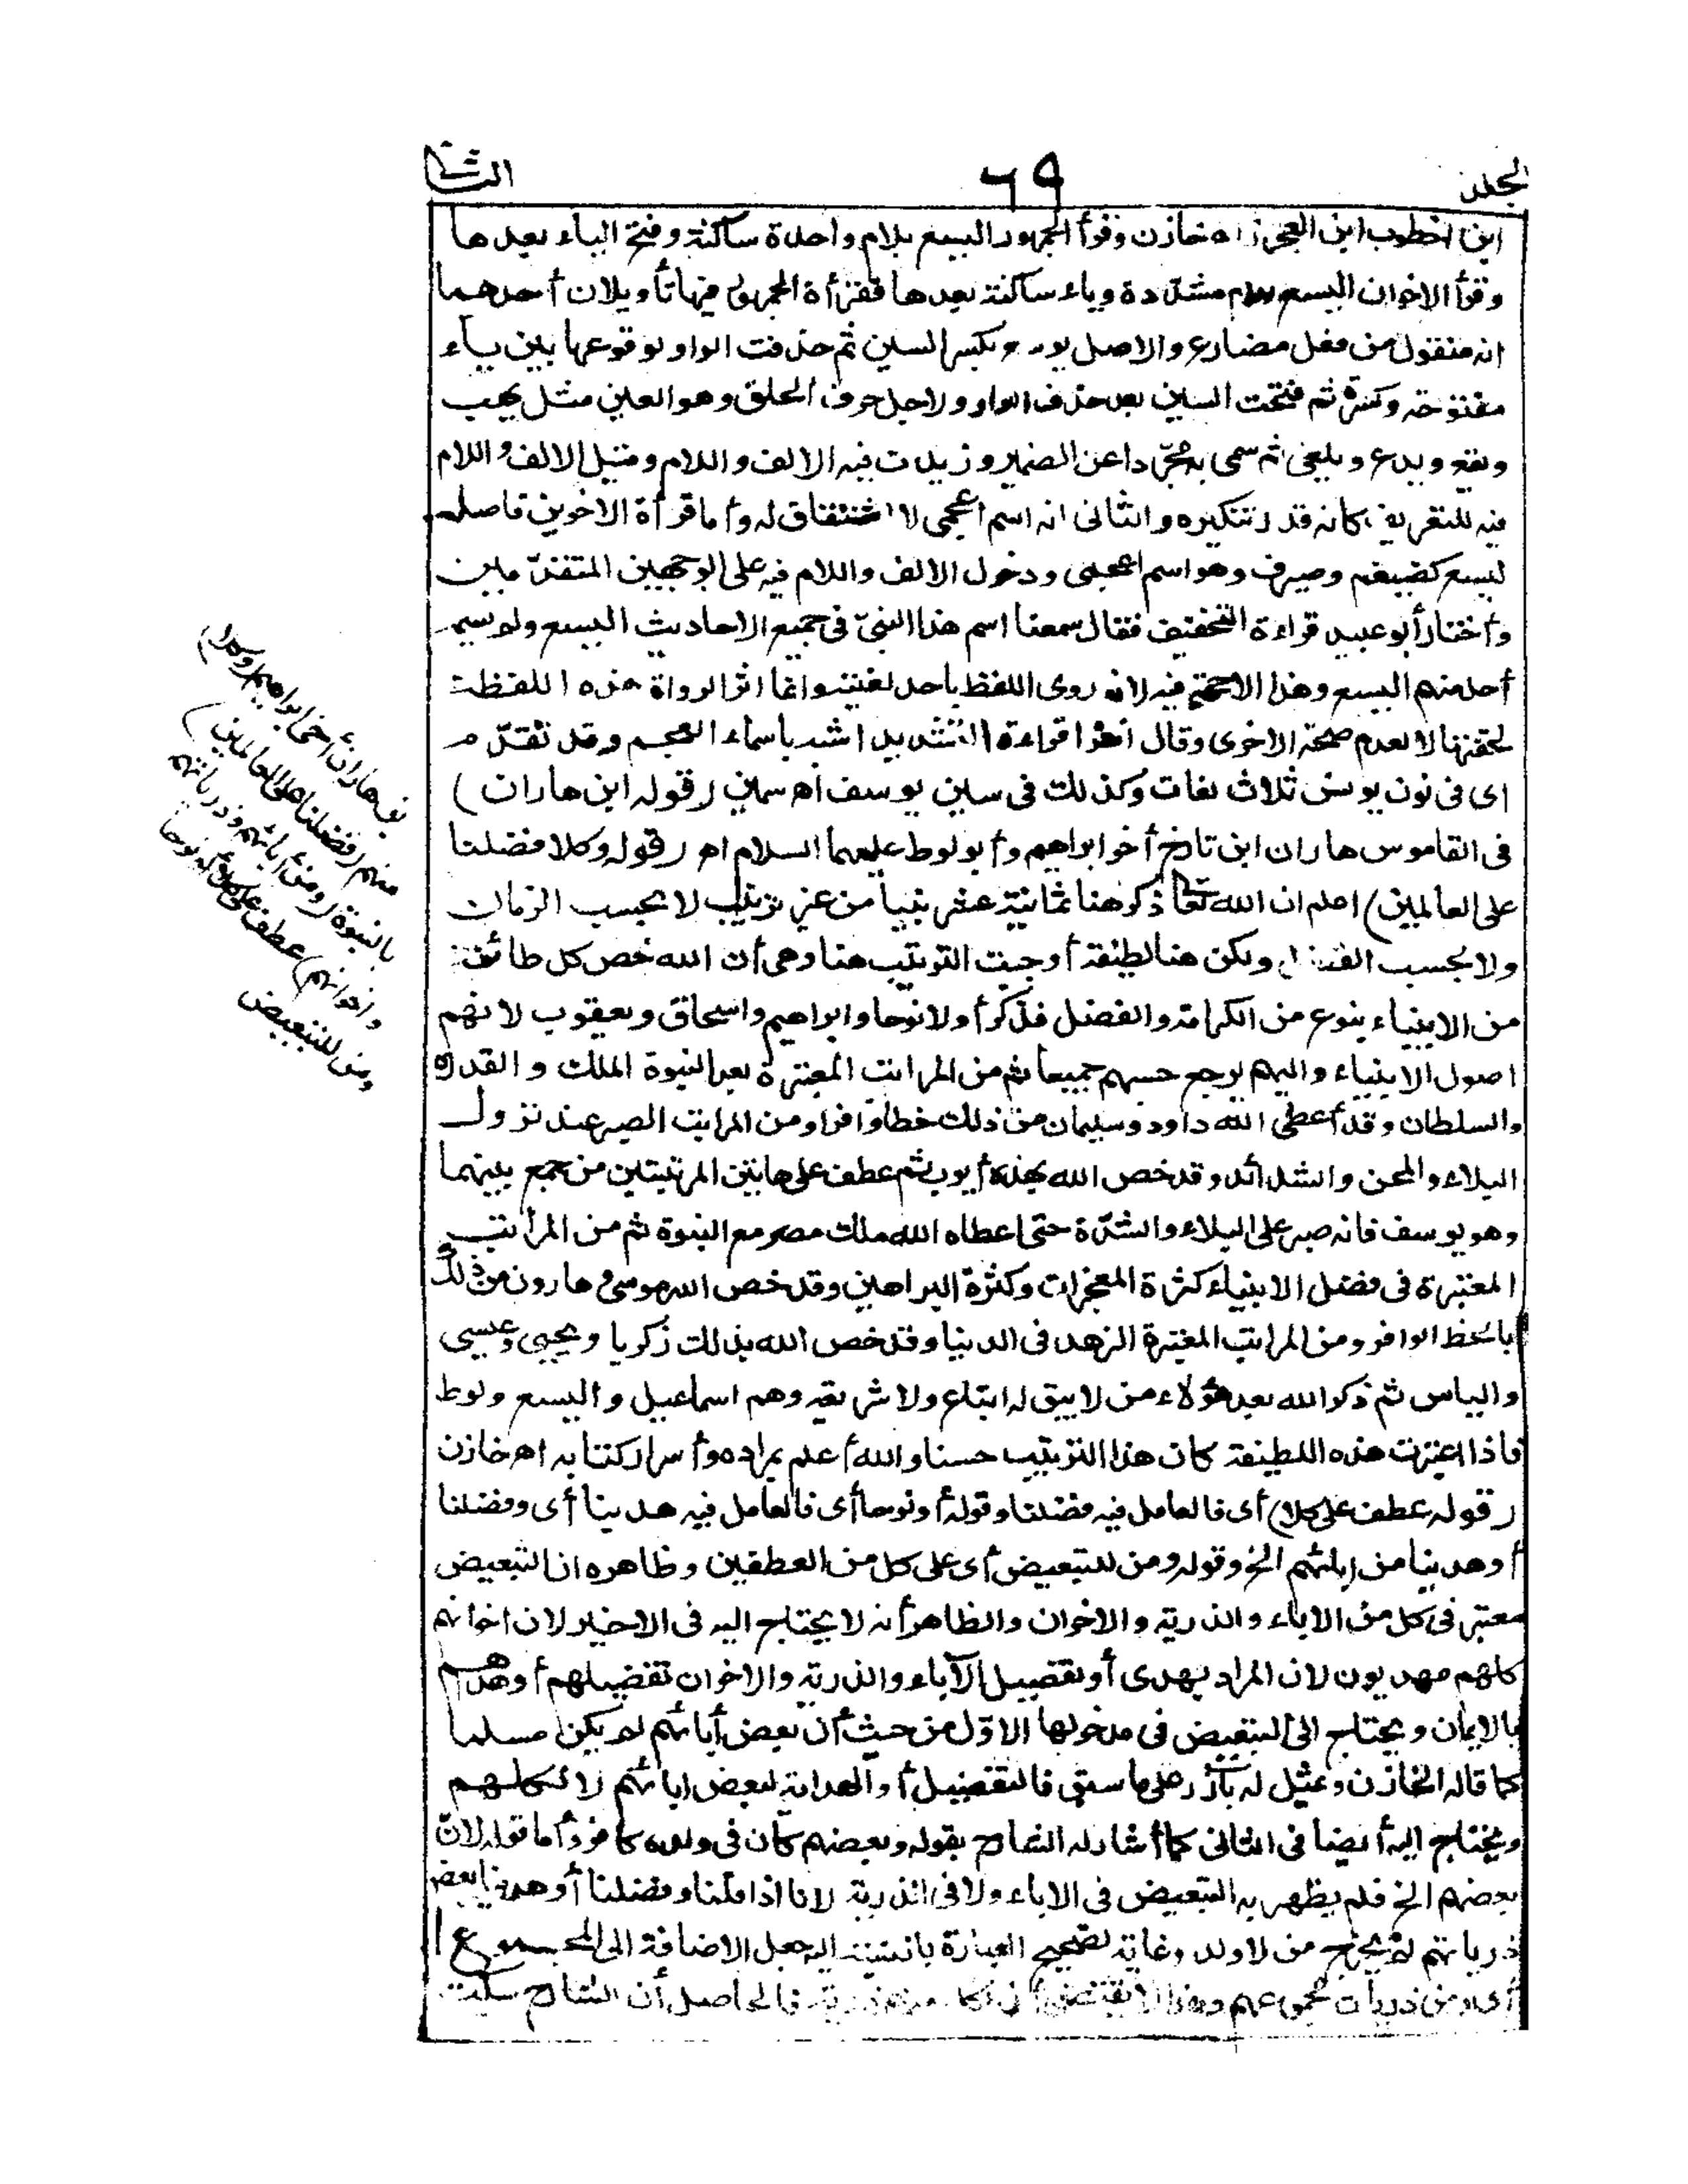 الجلد ٦٩ الثانى
ابن اخطوب ابن العجوز اه خازن وقرأ الجمهور اليسع بلام واحدة ساكنة وفتح الياء بعدها
وقرأ الاخوان اليسع بلام مشددة وياء ساكنة بعدها فقرأة الجمهور فيها تأويلان أحدهما
انه منقول من فعل مضارع والاصل يوسع بكسر السين ثم حذفت الواو لوقوعها بين ياء
مفتوحة وكسرة ثم فتحت السين بعد حذف الواو ولاجل حرف الحلق وهو العين مثل يهب
ويقع ويدع ويلغ ثم سمى به مجرّدا عن الضمير وزيدت فيه الالف واللام وقيل الالف واللام
فيه للتعريف كانه قدر تنكيره والثانى انه اسم اعجمى لا اشتقاق له وأما قرأة الاخوين فاصله
ليسع كضيغم وصيرف وهو اسم اعجمى ودخول الالف واللام فيه على الوجهين المتقدّمين
وأختار أبو عبيد قراءة التخفيف فقال سمعنا اسم هذا النبىّ فى جميع الاحاديث اليسع ولم يسم
أحد منهم اليسع وهذا لاحجة فيه لانه روى اللفظ باحد لغتيه وانما اثر الرواة هذه اللفظة
لخفتها لا لعدم صحة الاخرى وقال الفرا قراءة التشديد اشبه باسماء العجم وقد تقدّم
اى فى نون يونس ثلاث لغات وكذلك فى سين يوسف اه سمين (قوله ابن هاران)
فى القاموس هاران ابن تارخ أخو ابراهيم وأبو لوط عليهما السلام اه (قوله وكلا فضلنا
على العالمين) اعلم ان الله تعالى ذكر هنا ثمانية عشر نبيا من غير ترتيب لا بحسب الزمان
ولا بحسب الفضل ولكن هنا لطيفة أوجبت الترتيب هنا وهى أن الله خص كل طائفة
من الانبياء بنوع من الكرامة والفضل فذكر أولا نوحا وابراهيم واسحاق ويعقوب لانهم
اصول الانبياء واليهم يرجع حسبهم جميعا ثم من المراتب المعتبرة بعد النبوة الملك والقدرة
والسلطان وقد أعطى الله داود وسليمان من ذلك حظا وافرا ومن المراتب الصبر عند نزول
البلاء والمحن والشدائد وقد خص الله بهذه أيوب ثم عطف على هاتين المرتبتين من جمع بينهما
وهو يوسف فانه صبر على البلاء والشدّة حتى اعطاه الله ملك مصر مع النبوة ثم من المراتب
المعتبرة فى فضل الانبياء كثرة المعجزات وكثرة البراهين وقد خص الله موسى وهارون من ذلك
بالحظ الوافر ومن المراتب المعتبرة الزهد فى الدنيا وقد خص الله بذلك زكريا ويحيى وعيسى
والياس ثم ذكر الله بعد هؤلاء من لا يبق له اتباع ولا شريعة وهم اسماعيل واليسع ولوط
فاذا اعتبرت هذه اللطيفة كان هذا الترتيب حسنا والله أعلم بمراده وأسرار كتابه اه خازن
(قوله عطف على كلا) أى فالعامل فيه فضلنا وقوله أو نوحا أى فالعامل فيه هدينا أى وفضلنا
أو هدينا من ابائهم الخ وقوله ومن للتبعيض أى على كل من العطفين وظاهره ان التبعيض
معتبر فى كل من الاباء والذرية والاخوان والظاهر أنه لا يحتاج اليه فى الاخير لان اخوانهم
كلهم مهديون لان المراد بهدى أو بفضيل الآباء والذرية والاخوان تفضيلهم أو هداهم
بالايمان ويحتاج الى التبعيض فى مدخولها الاوّل من حيث أن بعض أبائهم لم يكن مسلما
كما قاله الخازن وعثيل له بآزر على ما سبق فالتفضيل أو الهداية لبعض ابائهم لا لكلهم
ويحتاج اليه أيضا فى الثانى كما أشار له الشارح بقوله وبعضهم كان فى ولده كافر وأما قوله لانّ
بعضهم الخ فلم يظهر به التبعيض فى الاباء ولا فى الذرية لانا اذا قلنا وفضلنا أو هدينا بعض
ذرياتهم لم يخرج من لا ولد وغاية تصحيح العبارة بالنسبة اليه جعل الاضافة الى المجموع
أى ومن ذريات مجموعهم وهذا لا يقتضى أن لكل منهم ذرية فالحاصل أن الشارح سكت
بن هاران أخى ابراهيم (وكلا)
منهم (فضلنا على العالمين)
بالنبوة (ومن أبائهم وذرياتهم
واخوانهم) عطف على كلا أو نوحا
ومن للتبعيض